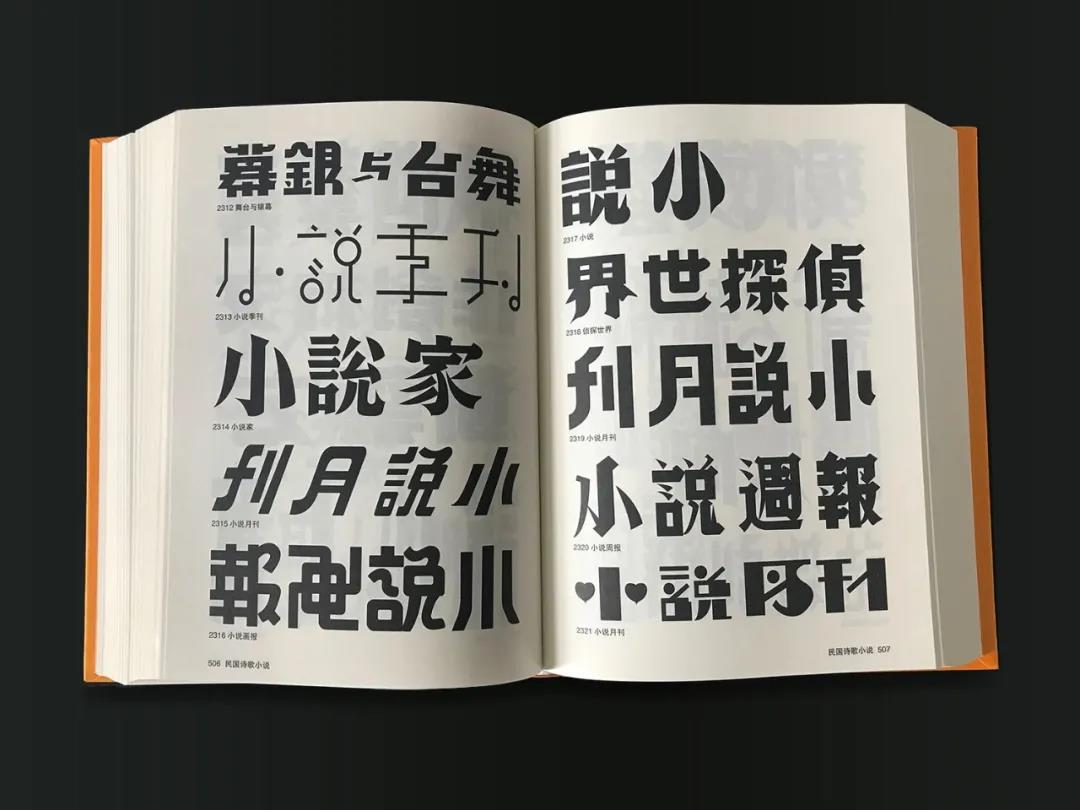 舞台与銀幕
2312 舞台与银幕
小·說季刊
2313 小说季刊
小說家
2314 小说家
小説月刊
2315 小说月刊
小説画報
2316 小说画报
506 民国诗歌小说
小説
2317 小说
偵探世界
2318 侦探世界
小説月刊
2319 小说月刊
小説週報
2320 小说周报
小説月刊
2321 小说月刊
民国诗歌小说 507